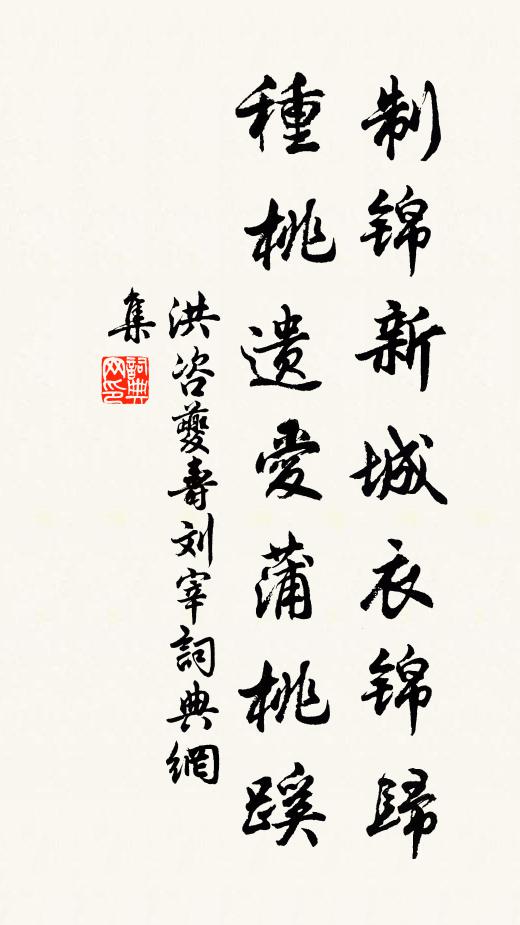 制锦新城衣锦歸
種桃遗愛蒲桃蹊
洪咨夔壽刘宰詞典網
集
詞典网印